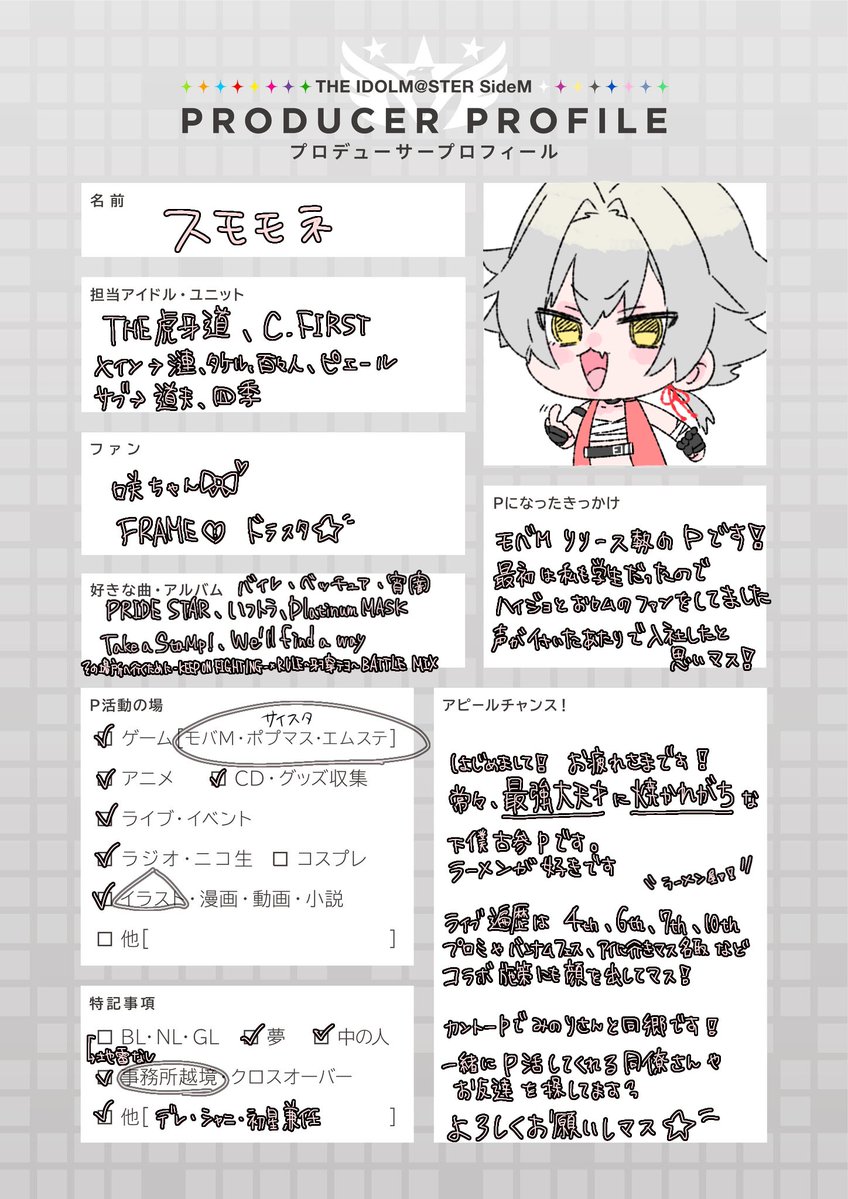 THE IDOLM@STER SideM
PRODUCER PROFILE
プロデューサープロフィール
名前
スモモネ
担当アイドル・ユニット
THE虎牙道、C.FIRST
メイン→漣、タケル、百々人、ピエール
サブ→道夫、四季
ファン
咲ちゃん
FRAME♡ ドラスタ☆
好きな曲・アルバム バイレ、ベッチュア、宵南
PRIDE STAR、いフトラ、Platinum MASK
Take a StaMp!、We'll find a way
その場所へ行くために〜KEEP ON FIGHTING→RULE〜 BATTLE MIX
Pになったきっかけ
モバM リリース勢のPです!
最初は私も学生だったので
ハイジョとおセムのファンをしてました
声が付いたあたりで入社したと
思いマス!
P活動の場
サイスタ
ゲーム[モバM・ポプマス・エムステ]
アニメ
CD・グッズ収集
ライブ・イベント
ラジオ・ニコ生
コスプレ
イラスト・漫画・動画・小説
他[ ]
特記事項
BL・NL・GL
夢
中の人
地雷なし
事務所越境・クロスオーバー
他[デレ・シャニ・初星兼任]
アピールチャンス!
はじめまして! お疲れさまです!
常々、最強大天才に焼かれがちな
下僕古参Pです。
ラーメンが好きです
ラーメン屋!!
ライブ遍歴は 4th、6th、7th、10th
プロミやバンナムフェス、アイに介きマス名取など
コラボ施策にも顔を出してマス!
カントーPでみのりさんと同郷です!
一緒にP活してくれる同僚さんや
お友達を探してます?
よろしくお願いしマス☆